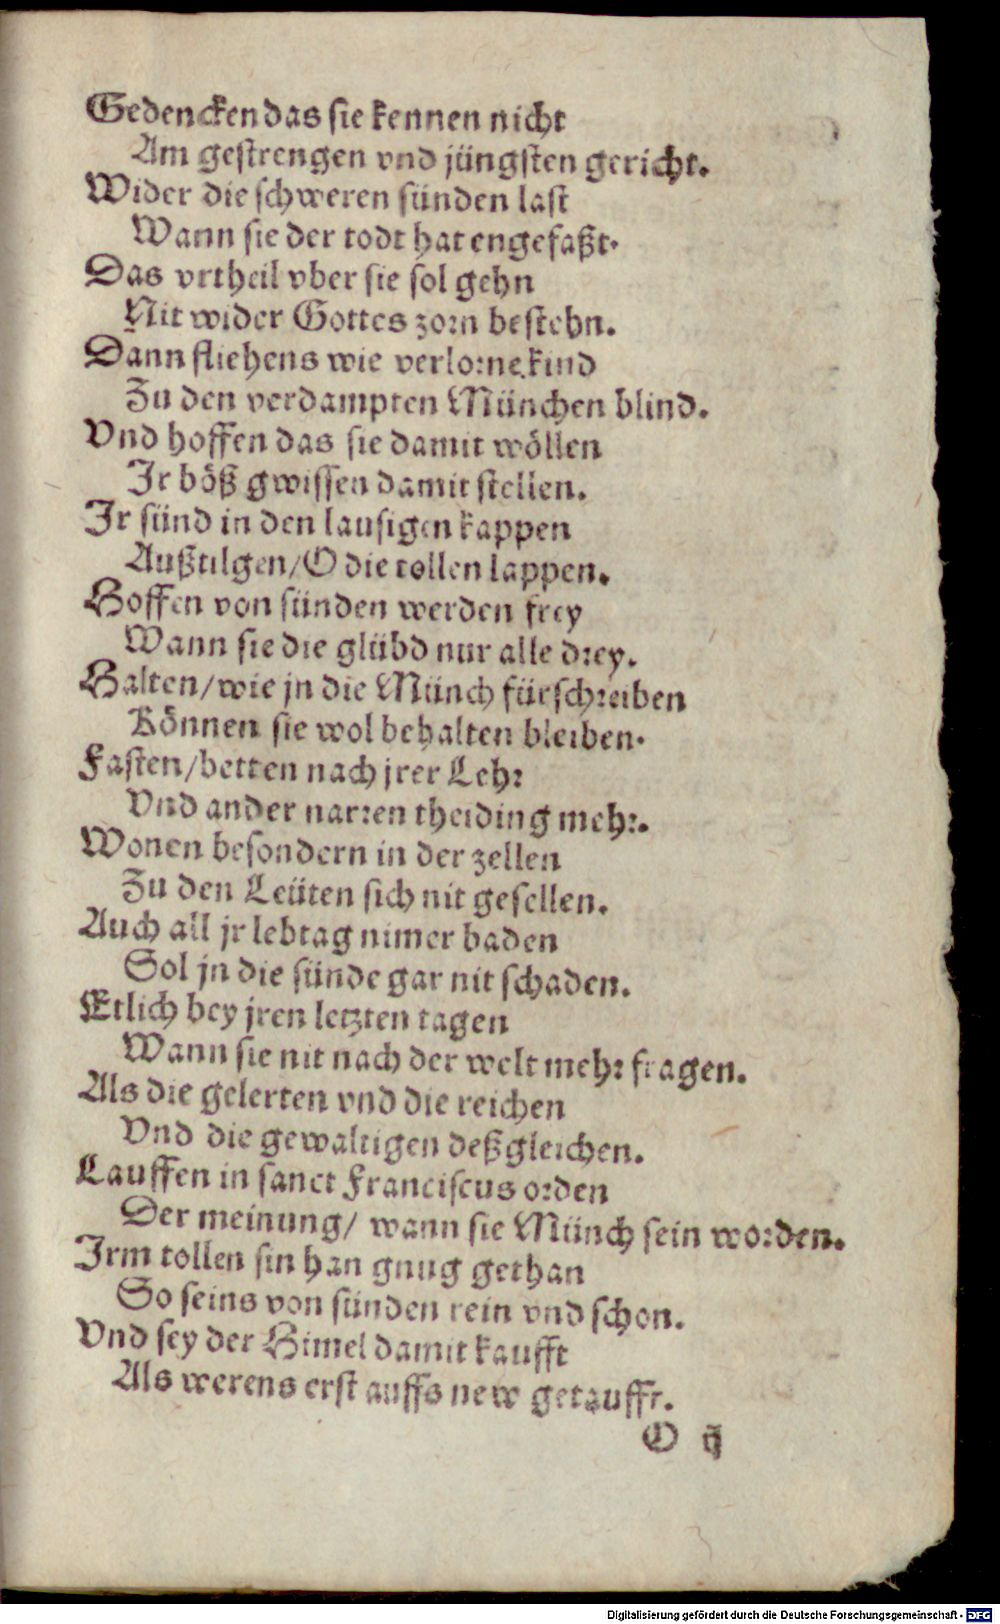 Gedencken das sie kennen nicht
Am gestrengen vnd jüngsten gericht.
Wider die schweren sünden last
Wann sie der todt hat engefaßt.
Das vrtheil vber sie sol gehn
Nit wider Gottes zorn bestehn.
Dann fliehens wie verlorne kind
Zu den verdampten München blind.
Vnd hoffen das sie damit wöllen
Ir böß gwissen damit stellen.
Ir sünd in den lausigen kappen
Außtilgen/O die tollen lappen.
Hoffen von sünden werden frey
Wann sie die glübd nur alle drey.
Halten/wie jn die Münch fürschreiben
Können sie wol behalten bleiben.
Fasten/betten nach jrer Lehr
Vnd ander narren theiding mehr.
Wonen besondern in der zellen
Zu den Leüten sich nit gesellen.
Auch all jr lebtag nimer baden
Sol jn die sünde gar nit schaden.
Etlich bey jren letzten tagen
Wann sie nit nach der welt mehr fragen.
Als die gelerten vnd die reichen
Vnd die gewaltigen deßgleichen.
Lauffen in sanct Franciscus orden
Der meinung/ wann sie Münch sein worden.
Irm tollen sin han gnug gethan
So seins von sünden rein vnd schon.
Vnd sey der Himel damit kaufft
Als werens erst auffs new getaufft.
O ij
Digitalisierung gefördert durch die Deutsche Forschungsgemeinschaft - DFG